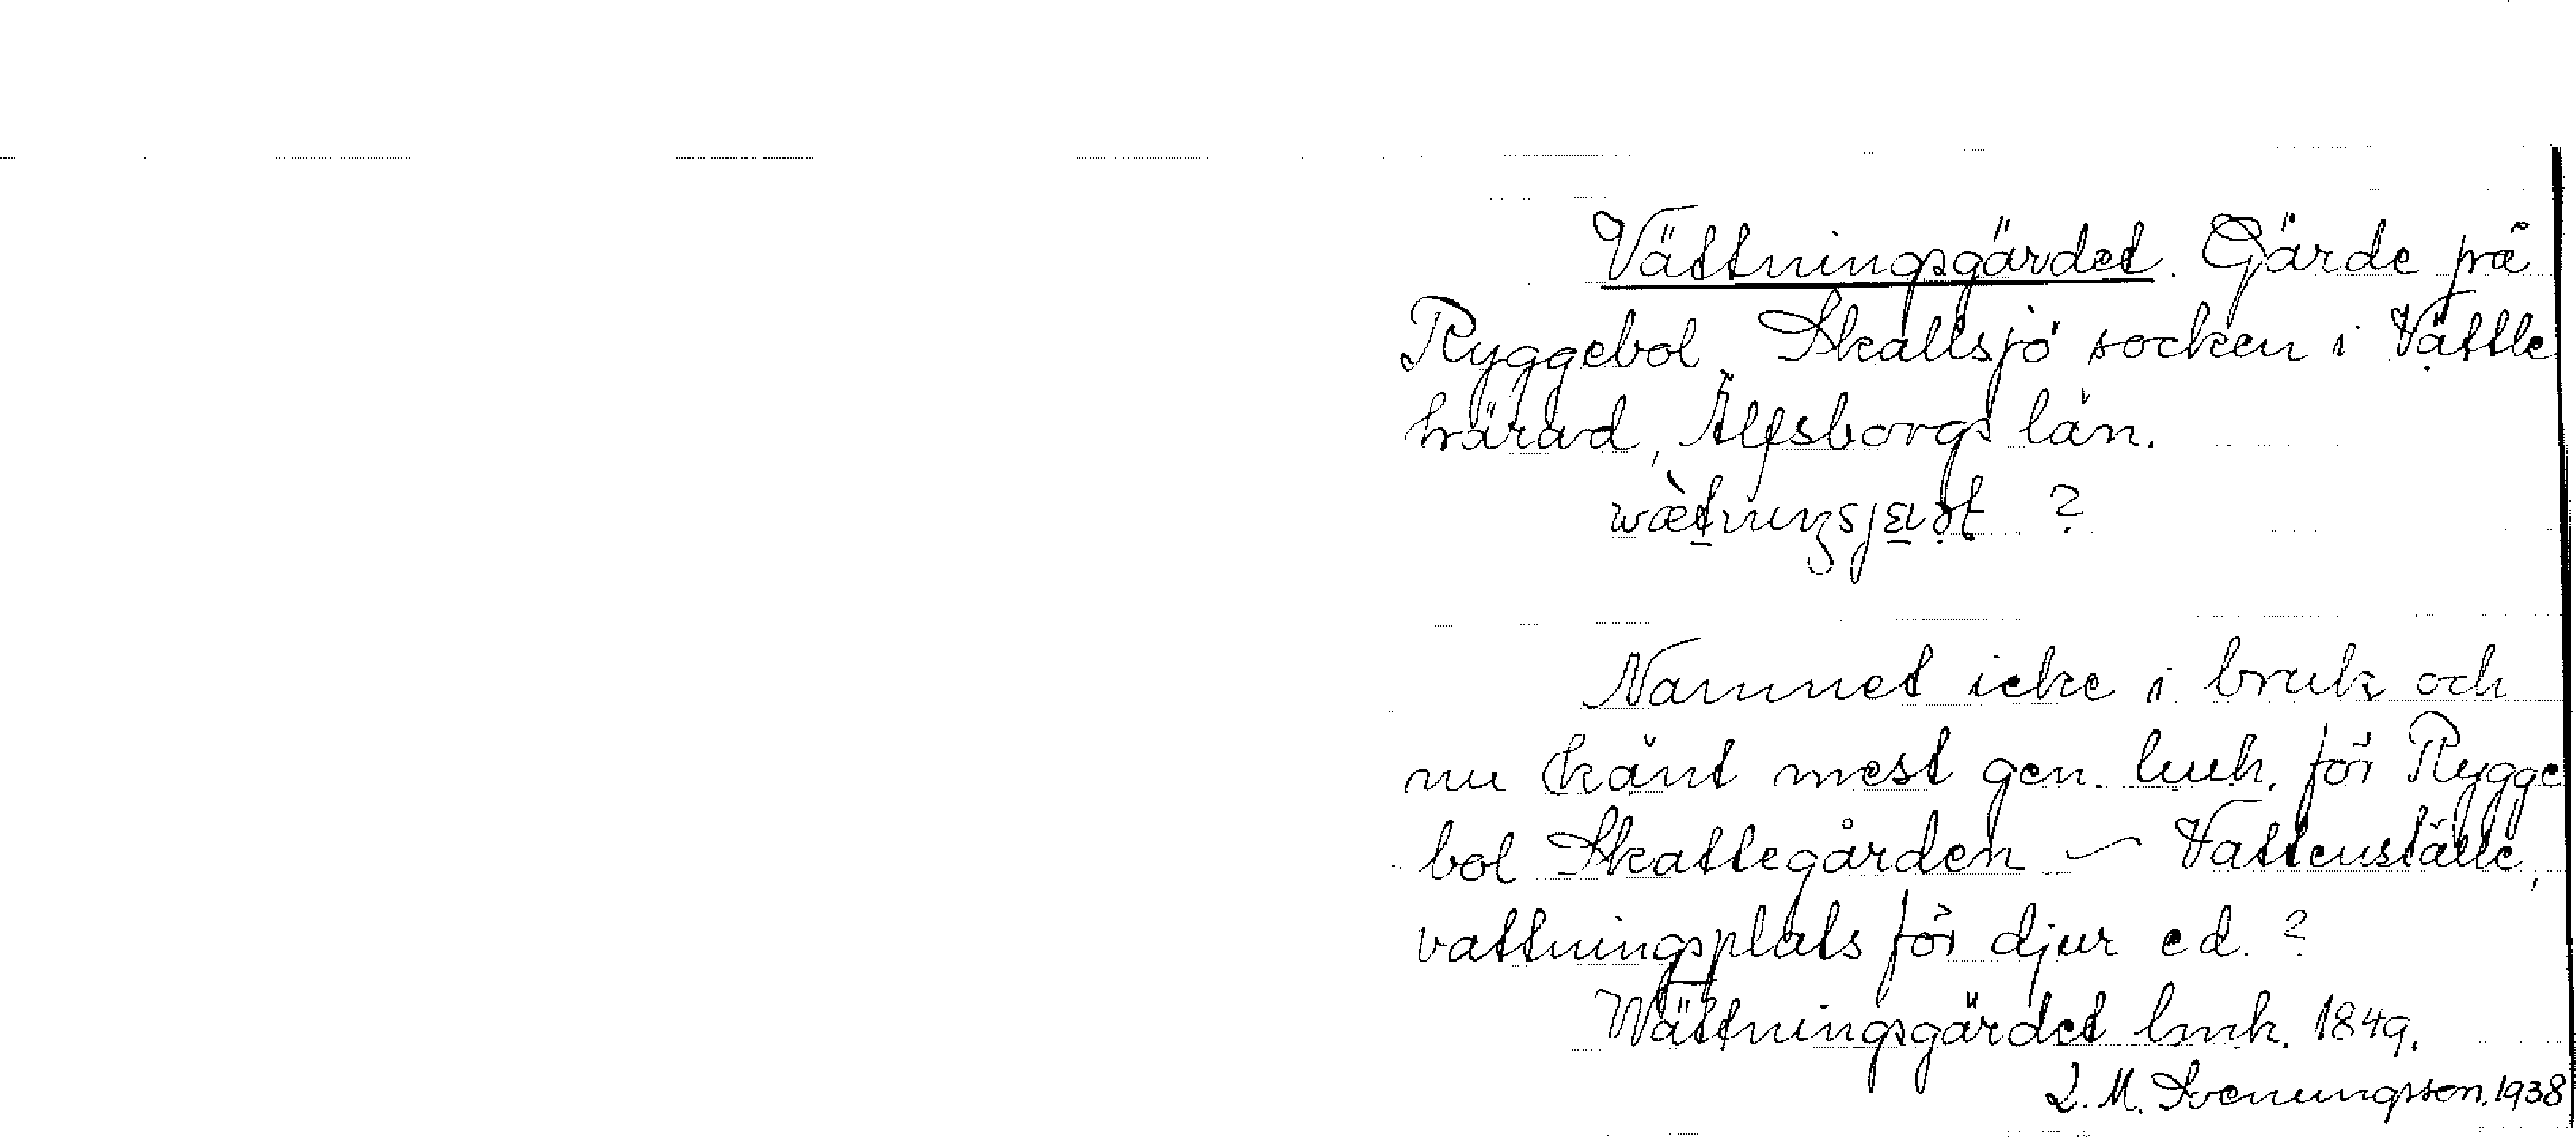 Vättningsgärdet. Gärde på
Ryggebol, Skallsjö socken i Vättle
härad, Älfsborgs län.
wæ̀tnɩŋsjæṇt ?
Namnet icke i bruk och
nu känt mest gen. lmk. för Rygge
-bol Skattegården — Vattenställe,
vattningsplats för djur ed. ?
Wättningsgärdet lmk. 1849.
L. M. Svenungsson. 1938